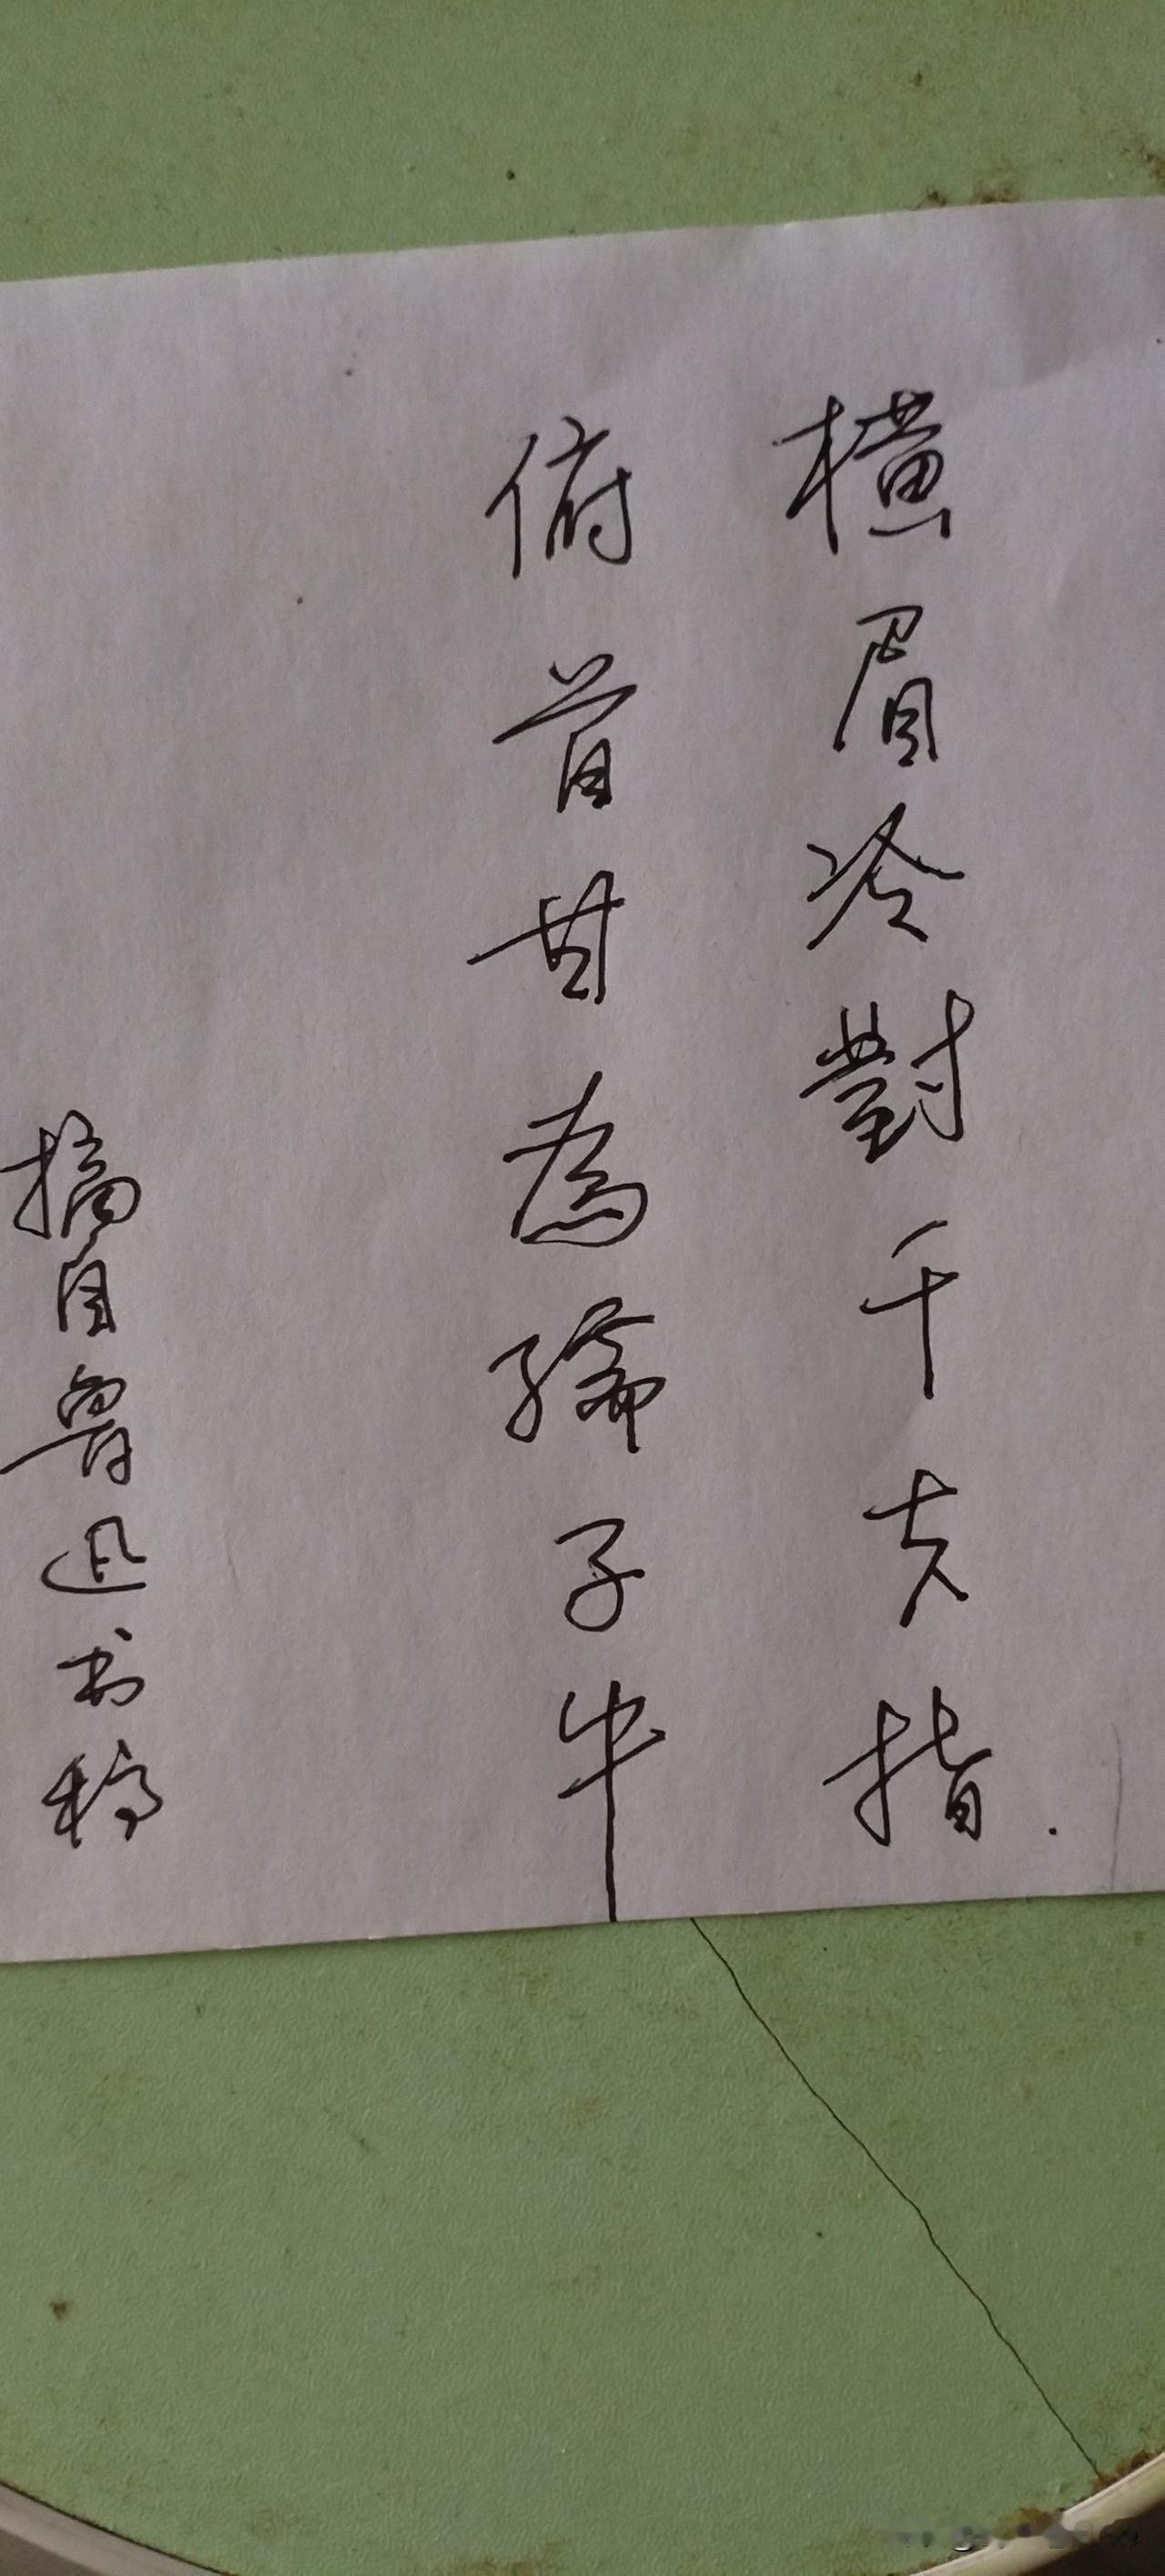 横眉冷對千夫指.
俯首甘為孺子牛
摘自鲁迅书稿